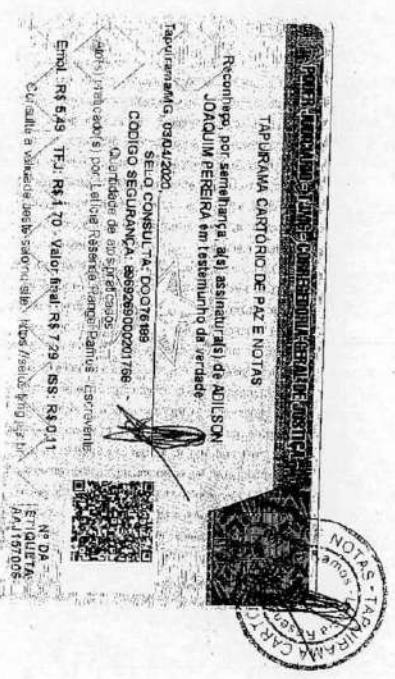 PODER JUDICIÁRIO - TJMG - CORREGEDORIA-GERAL DE JUSTIÇA
TAPUIRAMA CARTÓRIO DE PAZ E NOTAS
Reconheço, por semelhança, a(s) assinatura(s) de ADILSON
JOAQUIM PEREIRA em testemunho da verdade
Tapuirama/MG, 03/04/2020
SELO CONSULTA: DOQ76189
CÓDIGO SEGURANÇA:
Quantidade de atos praticados:
Ato(s) praticado(s) por Letícia Resende Rangel Ramos - Escrevente
Emol.: R$ 5,49 - TFJ: R$ 1,70 - Valor final: R$ 7,29 - ISS: R$ 0,11
Consulte a validade deste selo no site: https://selos.tjmg.jus.br
Nº DA
ETIQUETA
NOTAS - TAPUIRAMA CARTÓ